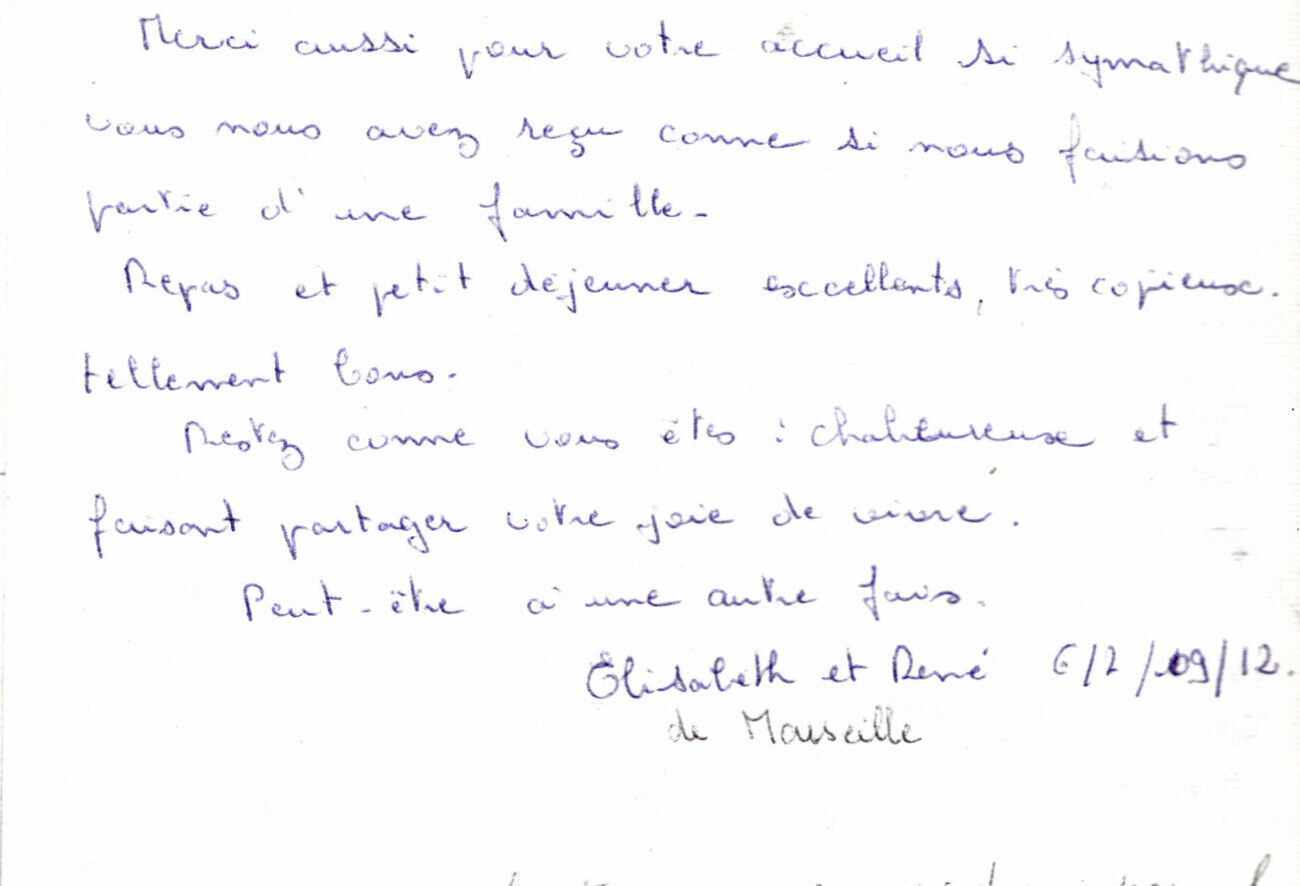 Merci aussi pour votre accueil si symathique
vous nous avez reçu comme si nous faisions
partie d'une famille.
Repas et petit déjeuner excellents, très copieux.
tellement bons.
Restez comme vous êtes : chaleureux et
faisant partager votre joie de vivre.
Peut-être à une autre fois.
Elisabeth et René 6/7/09/12.
de Marseille